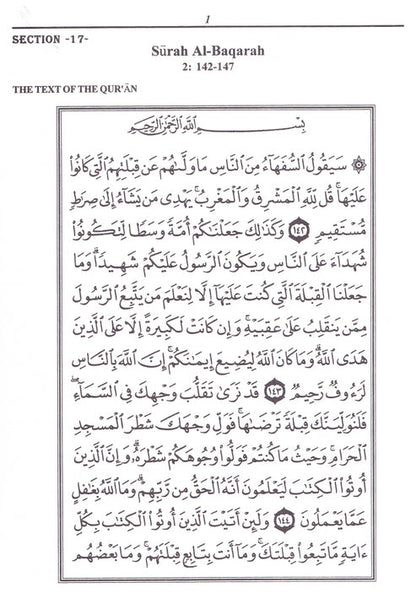 1
SECTION -17-
Sūrah Al-Baqarah
2: 142-147
THE TEXT OF THE QUR'ĀN
بِسْمِ اللَّهِ الرَّحْمَٰنِ الرَّحِيمِ
۞ سَيَقُولُ السُّفَهَاءُ مِنَ النَّاسِ مَا وَلَّىٰهُمْ عَن قِبْلَتِهِمُ الَّتِي كَانُوا
عَلَيْهَا ۚ قُل لِّلَّهِ الْمَشْرِقُ وَالْمَغْرِبُ ۚ يَهْدِي مَن يَشَاءُ إِلَىٰ صِرَٰطٍ
مُّسْتَقِيمٍ ١٤٢ وَكَذَٰلِكَ جَعَلْنَٰكُمْ أُمَّةً وَسَطًا لِّتَكُونُوا
شُهَدَاءَ عَلَى النَّاسِ وَيَكُونَ الرَّسُولُ عَلَيْكُمْ شَهِيدًا ۗ وَمَا
جَعَلْنَا الْقِبْلَةَ الَّتِي كُنتَ عَلَيْهَا إِلَّا لِنَعْلَمَ مَن يَتَّبِعُ الرَّسُولَ
مِمَّن يَنقَلِبُ عَلَىٰ عَقِبَيْهِ ۚ وَإِن كَانَتْ لَكَبِيرَةً إِلَّا عَلَى الَّذِينَ
هَدَى اللَّهُ ۗ وَمَا كَانَ اللَّهُ لِيُضِيعَ إِيمَٰنَكُمْ ۚ إِنَّ اللَّهَ بِالنَّاسِ
لَرَءُوفٌ رَّحِيمٌ ١٤٣ قَدْ نَرَىٰ تَقَلُّبَ وَجْهِكَ فِي السَّمَاءِ ۖ
فَلَنُوَلِّيَنَّكَ قِبْلَةً تَرْضَىٰهَا ۚ فَوَلِّ وَجْهَكَ شَطْرَ الْمَسْجِدِ
الْحَرَامِ ۚ وَحَيْثُ مَا كُنتُمْ فَوَلُّوا وُجُوهَكُمْ شَطْرَهُ ۗ وَإِنَّ الَّذِينَ
أُوتُوا الْكِتَٰبَ لَيَعْلَمُونَ أَنَّهُ الْحَقُّ مِن رَّبِّهِمْ ۗ وَمَا اللَّهُ بِغَٰفِلٍ
عَمَّا يَعْمَلُونَ ١٤٤ وَلَئِنْ أَتَيْتَ الَّذِينَ أُوتُوا الْكِتَٰبَ بِكُلِّ
ءَايَةٍ مَّا تَبِعُوا قِبْلَتَكَ ۚ وَمَا أَنتَ بِتَابِعٍ قِبْلَتَهُمْ ۚ وَمَا بَعْضُهُم